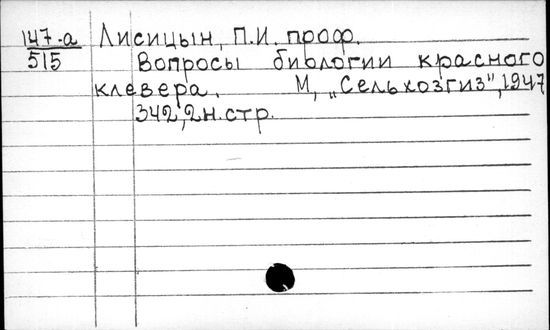 147-а Лисицын, П.И. проф.
515 Вопросы биологии красного
клевера. М, „Сельхозгиз", 1947
342, 2н. стр.